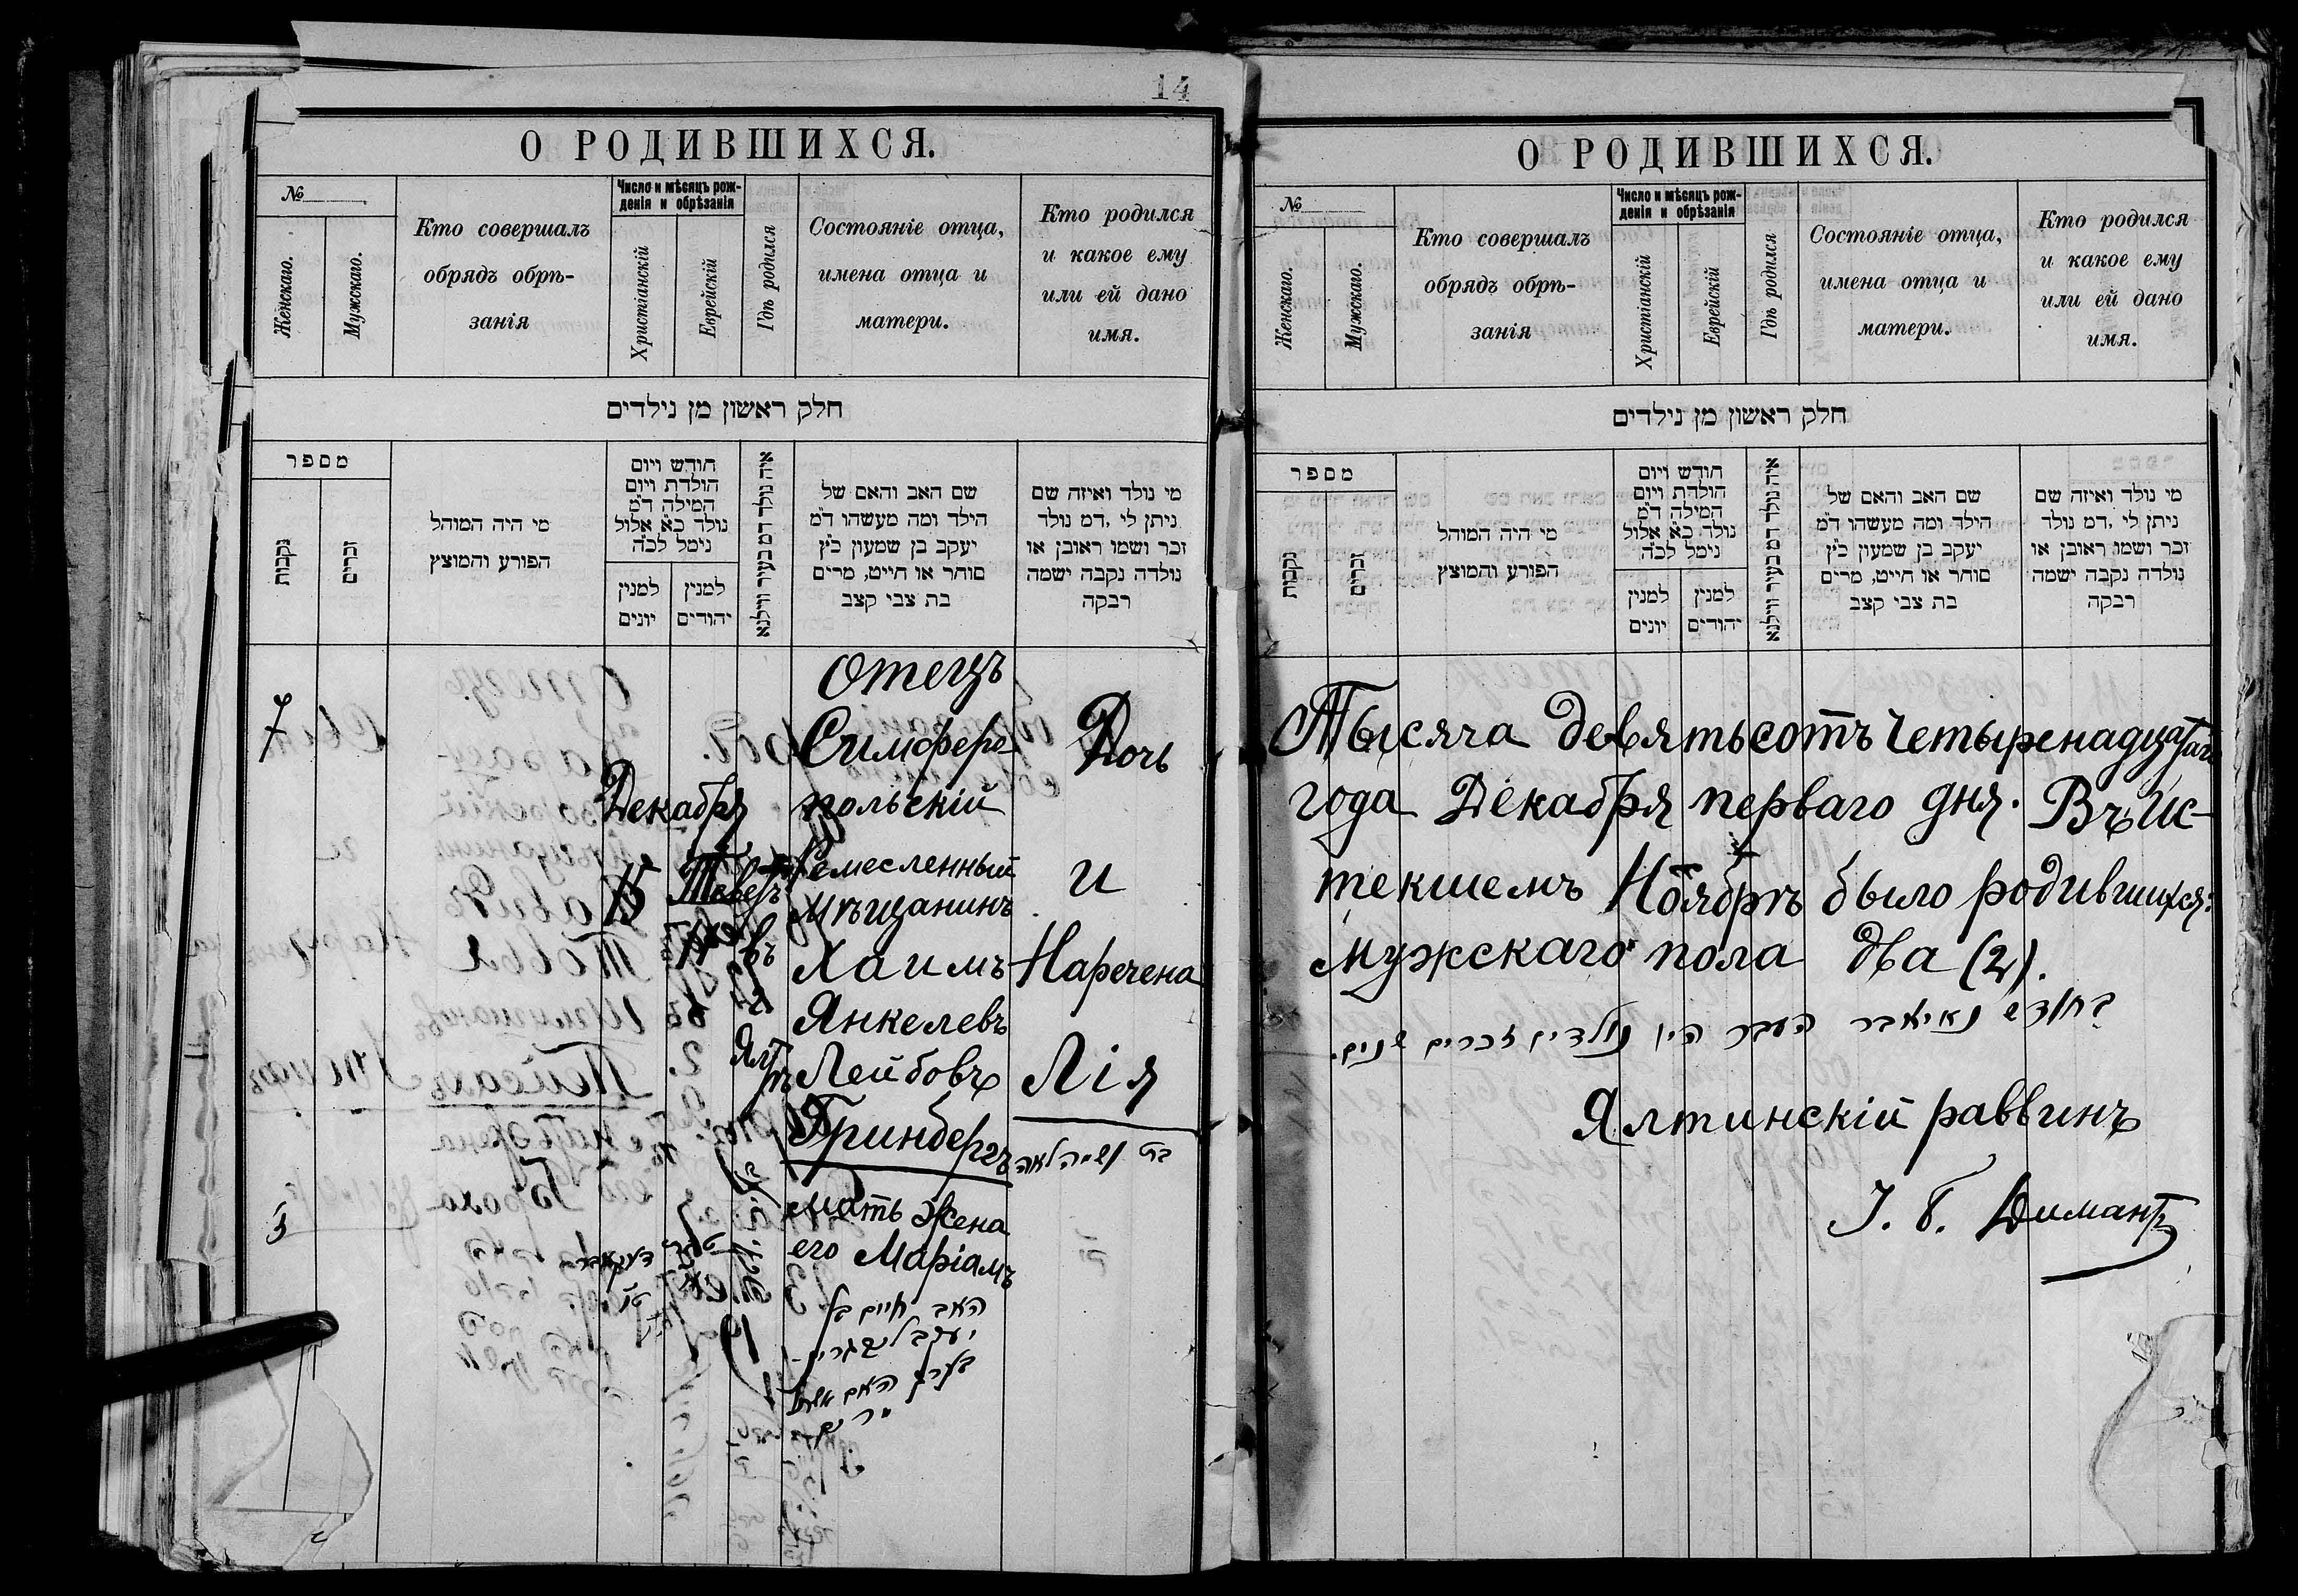 14
О РОДИВШИХСЯ.
№
Женскаго.
Мужскаго.
Кто совершалъ
обрядъ обрѣ-
занія
Число и мѣсяцъ рож-
денія и обрѣзанія
Христіанскій
Еврейскій
Гдѣ родился
Состояніе отца,
имена отца и
матери.
Кто родился
и какое ему
или ей дано
имя.
חלק ראשון מן נילדים
מספר
נקבות
זכרים
מי היה המוהל
הפורע והמוצץ
חודש ויום
הולדת ויום
המילה ד״מ
נולד כ״א אלול
נימל לכ״ה
למנין
יונים
למנין
יהודים
איה נולד דמ בעיר ווילנא
שם האב והאם של
הילד ומה מעשהו ד״מ
יעקב בן שמעון כ״ץ
סוחר או חייט, מרים
בת צבי קצב
מי נולד ואיזה שם
ניתן לי, דמ נולד
זכר ושמו ראובן או
נולדה נקבה ישמה
רבקה
7
Декабря
15
Тевеѳъ
въ
Ялтѣ
отецъ
Симферо-
польскій
Ремесленный
мѣщанинъ
Хаимъ
Янкелевъ
Лейбовъ
Гринбергъ
мать жена
его Маріамъ
Дочь
и
Наречена
Лія
האב חיים בן
О РОДИВШИХСЯ.
№
Женскаго.
Мужскаго.
Кто совершалъ
обрядъ обрѣ-
занія
Число и мѣсяцъ рож-
денія и обрѣзанія
Христіанскій
Еврейскій
Гдѣ родился
Состояніе отца,
имена отца и
матери.
Кто родился
и какое ему
или ей дано
имя.
חלק ראשון מן נילדים
מספר
נקבות
זכרים
מי היה המוהל
הפורע והמוצץ
חודש ויום
הולדת ויום
המילה ד״מ
נולד כ״א אלול
נימל לכ״ה
למנין
יונים
למנין
יהודים
איה נולד דמ בעיר ווילנא
שם האב והאם של
הילד ומה מעשהו ד״מ
יעקב בן שמעון כ״ץ
סוחר או חייט, מרים
בת צבי קצב
מי נולד ואיזה שם
ניתן לי, דמ נולד
זכר ושמו ראובן או
נולדה נקבה ישמה
רבקה
Тысяча девятьсотъ четыренадцатаго
года Декабря перваго дня. Въ ис-
текшемъ Ноябрѣ было родившихся:
мужскаго пола два (2).
בחודש נאיאבר העבר היו נולדים זכרים שנים.
Ялтинскій раввинъ
І. Б. Димантъ